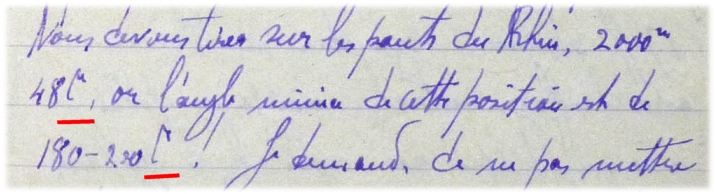 Nous devons tirer sur les ponts du Rhin, 2000 m
48 , or l'angle minim de cette position est de
180-220 ! Je demande de ne pas mettre